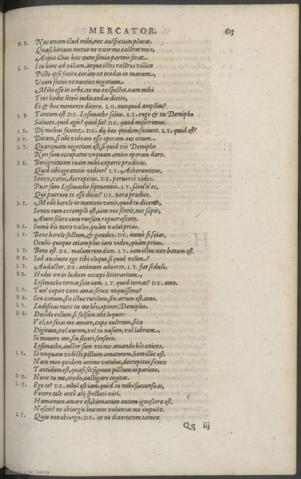 MERCATOR.
613
DE. Nec omen illud mihi, nec auspicium placet.
Quasi hircum metuo ne uxor me castret mea,
Atque illius haec nunc simiae partis ferat.
LY. I tu hinc ad villam, atque istos rastros vilico
Pisto ipsi facito coram ut tradas in manum.
Uxori facito ut nunties negotium
Mihi esse in urbe, ne me exspectet, nam mihi
Tres hodie liteis iudicandas dicito.
Ei & hoc memento dicere. LO. nunquid amplius?
LY. Tantum est. DE. Lysimache salue. LY. euge & tu Demipho
Salueto. quid agis? quid fit? DE. quod miserrumus.
LY. Dij melius faxint. DE. dij hoc quidem faciunt. LY. quid est?
DE. Dicam, si tibi videam esse operam aut otium.
LY. Quanquam negotium est, si quid vis Demipho
Non sum occupatus vnquam amico operam dare.
DE. Benignitatem tuam mihi experto praedicas.
Quid tibi ego aetatis videor? LY. Acherunticus,
Senex, vetus, decrepitus. DE. peruerse vides.
Puer sum Lysimache septuennis. LY. sanu'n' es,
Qui puerum te esse dicas? DE. vera praedico.
LY. Modò hercle in mentem venit, quid tu diceres,
Senex cum extemplo est, iam nec sentit, nec sapit,
Aiunt solere eum rursum repuerascere.
DE. Immò bis tanto valeo, quàm valui prius.
LY. Bene hercle factum, & gaudeo. DE. immò si scias,
Oculis quoque etiam plus iam video, quàm prius.
LY. Bene est. DE. malae rem dico. LY. iam istuc non bonum est.
DE. Sed ausimne ego tibi eloqui, si quid velim?
LY. Audacter. DE. animum aduorte. LY. fiet sedulò.
DE. Hodie ire in ludum occoepi litterarium,
Lysimache ternas scio iam. LY. quid ternas? DE. amo.
LY. Tun' capite cano amas senex nequissime?
DE. Seu canum, siu istuc rutilum, siu atrum est, amo.
LY. Ludificas nunc tu me hîc, opinor, Demipho.
DE. Decide collum, si falsum nûc loquor:
Vel, vt scias me amare, cape cultrum, seca
Digitum, vel aurem, vel tu nasum, vel labrum.
Si mouero me, siu secari sensero.
Lysimache, auctor sum vt me amando hîc enices.
LY. Si vnquam vidistis pictum amatorem, hem illic est.
Nam meo quidem animo vetulus, decrepitus senex
Tantidem est, quasi sit signum pictum in pariete.
DE. Nunc tu me, credo, castigare cogitas.
LY. Ego te? DE. nihil est iam, quod tu mihi succenseas,
Fecere tale antè alij spectati viri.
Humanum amare est, humanum autem ignoscere est.
LY. Quin non obiurgo. DE. at ne deteriorem tamen
Qq iij